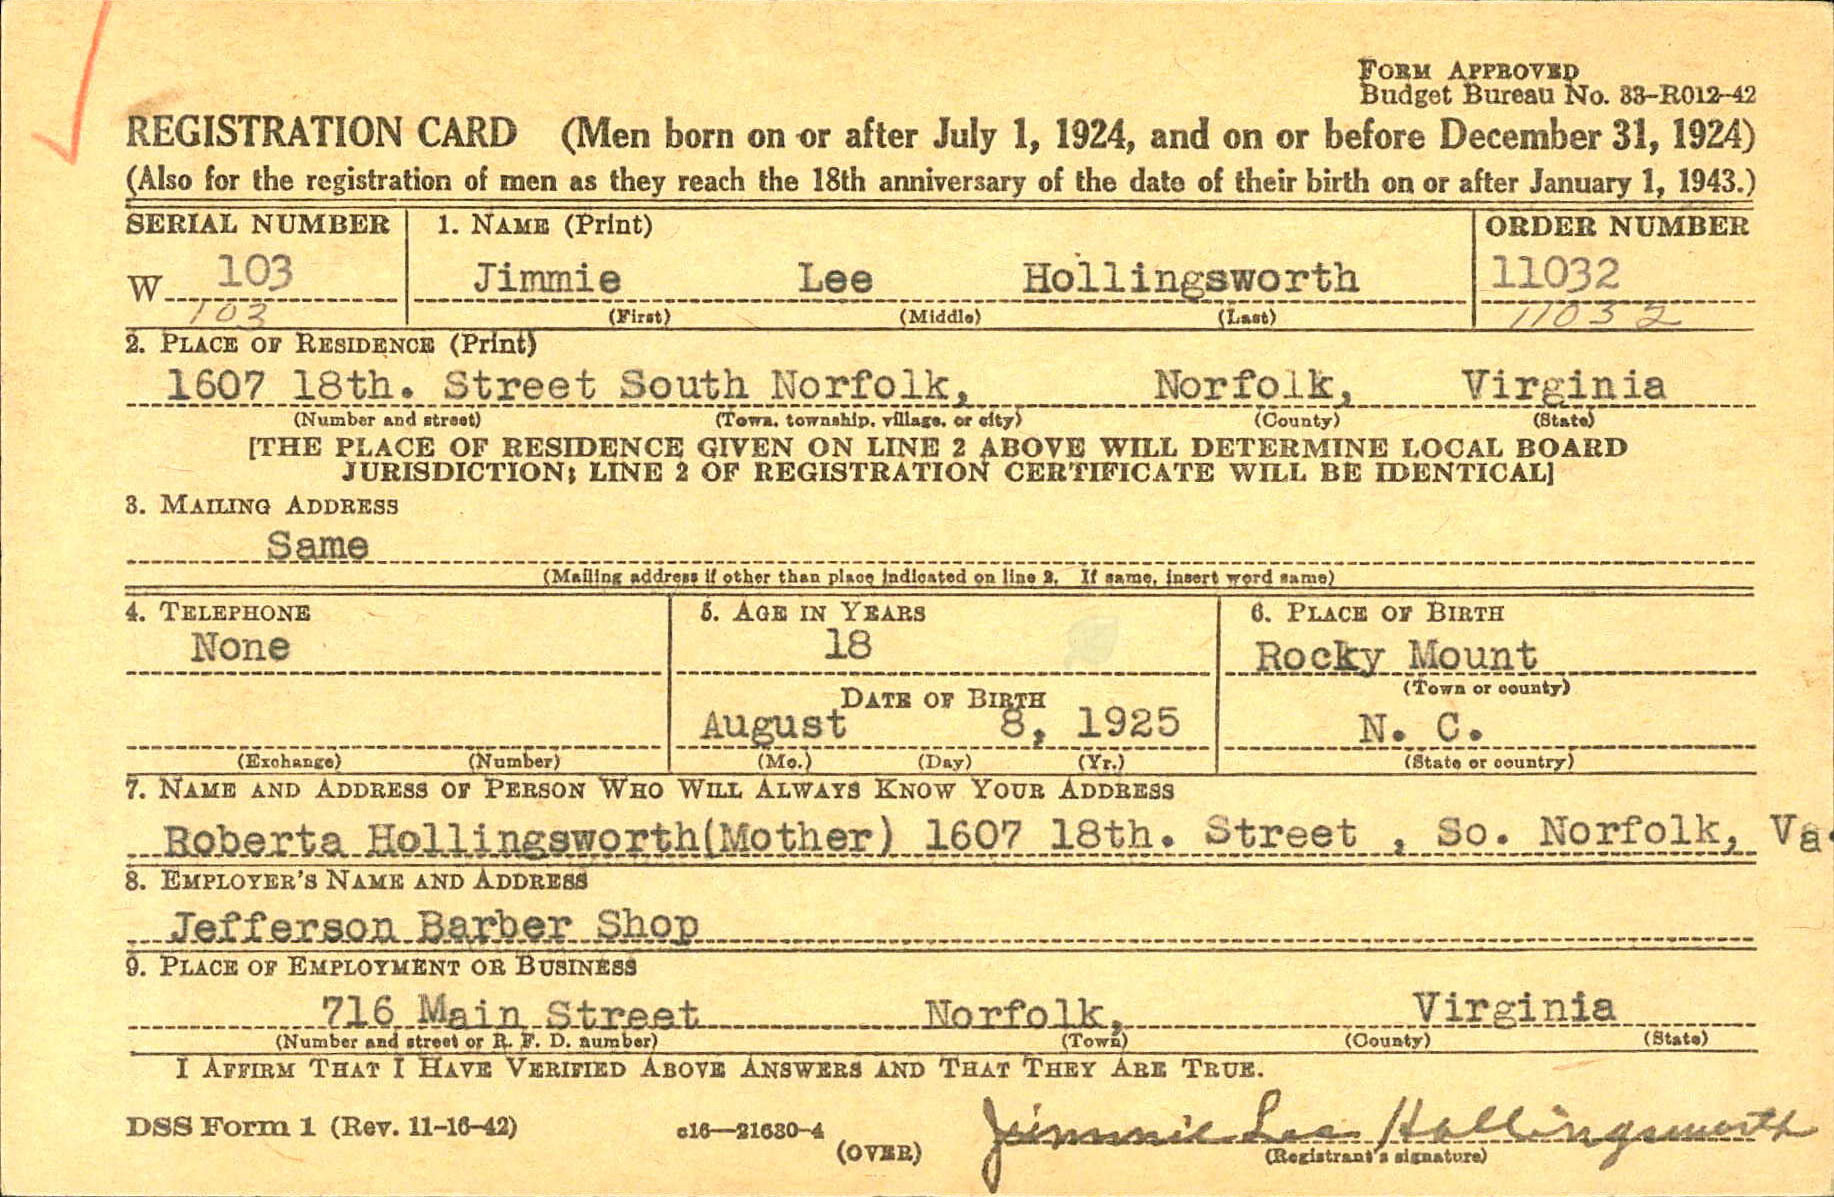 FORM APPROVED
Budget Bureau No. 33-R012-42
REGISTRATION CARD (Men born on or after July 1, 1924, and on or before December 31, 1924)
(Also for the registration of men as they reach the 18th anniversary of the date of their birth on or after January 1, 1943.)
SERIAL NUMBER 1. NAME (Print) ORDER NUMBER
W 103 Jimmie Lee Hollingsworth 11032
103 (First) (Middle) (Last) 11032
2. PLACE OF RESIDENCE (Print)
1607 18th. Street South Norfolk, Norfolk, Virginia
(Number and street) (Town, township, village, or city) (County) (State)
[THE PLACE OF RESIDENCE GIVEN ON LINE 2 ABOVE WILL DETERMINE LOCAL BOARD
JURISDICTION; LINE 2 OF REGISTRATION CERTIFICATE WILL BE IDENTICAL]
3. MAILING ADDRESS
Same
(Mailing address if other than place indicated on line 2. If same, insert word same)
4. TELEPHONE 5. AGE IN YEARS 6. PLACE OF BIRTH
None 18 Rocky Mount
(Town or county)
DATE OF BIRTH
August 8, 1925 N. C.
(Exchange) (Number) (Mo.) (Day) (Yr.) (State or country)
7. NAME AND ADDRESS OF PERSON WHO WILL ALWAYS KNOW YOUR ADDRESS
Roberta Hollingsworth(Mother) 1607 18th. Street , So. Norfolk, Va.
8. EMPLOYER'S NAME AND ADDRESS
Jefferson Barber Shop
9. PLACE OF EMPLOYMENT OR BUSINESS
716 Main Street Norfolk, Virginia
(Number and street or R. F. D. number) (Town) (County) (State)
I AFFIRM THAT I HAVE VERIFIED ABOVE ANSWERS AND THAT THEY ARE TRUE.
DSS Form 1 (Rev. 11-16-42) c16—21630-4 Jimmie Lee Hollingsworth
(OVER) (Registrant's signature)